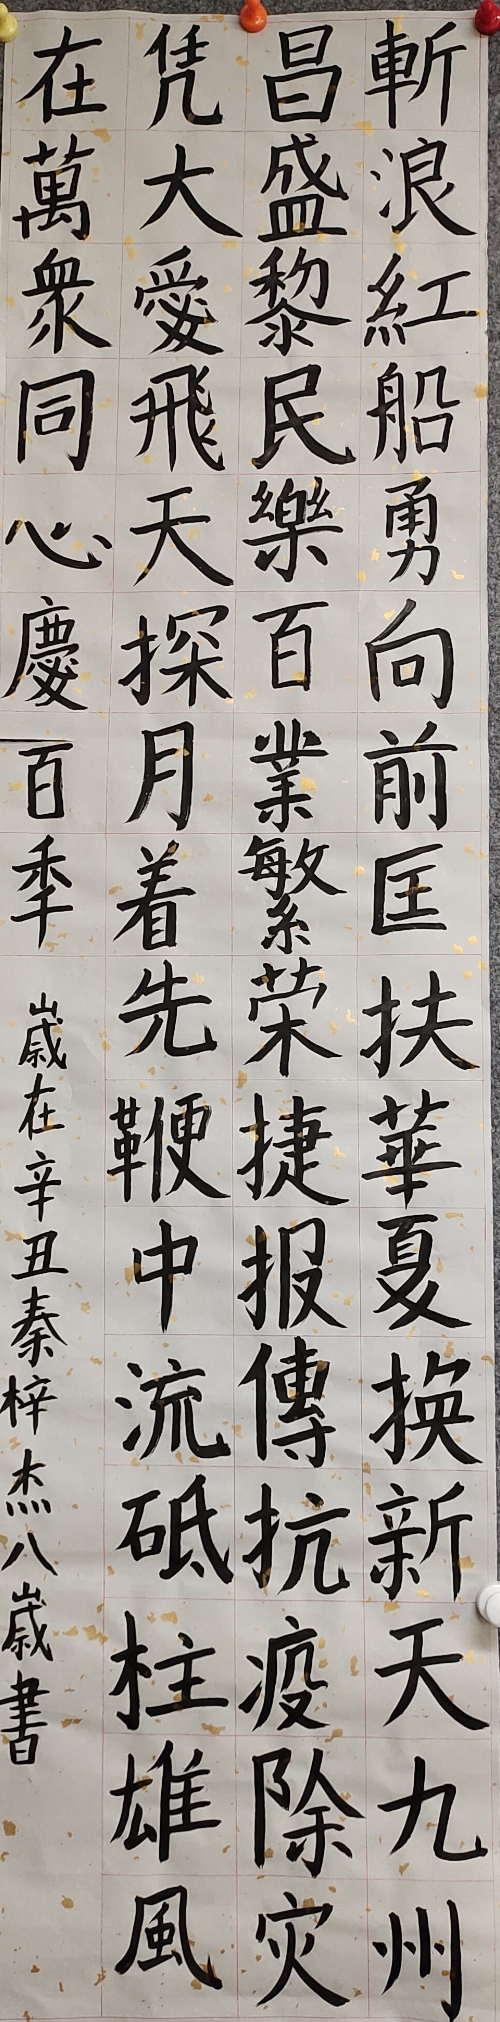 斬浪紅船勇向前匡扶華夏換新天九州
昌盛黎民樂百業繁荣捷报傳抗疫除灾
凭大愛飛天探月着先鞭中流砥柱雄風
在萬衆同心慶百秊
歲在辛丑秦梓杰八歲書